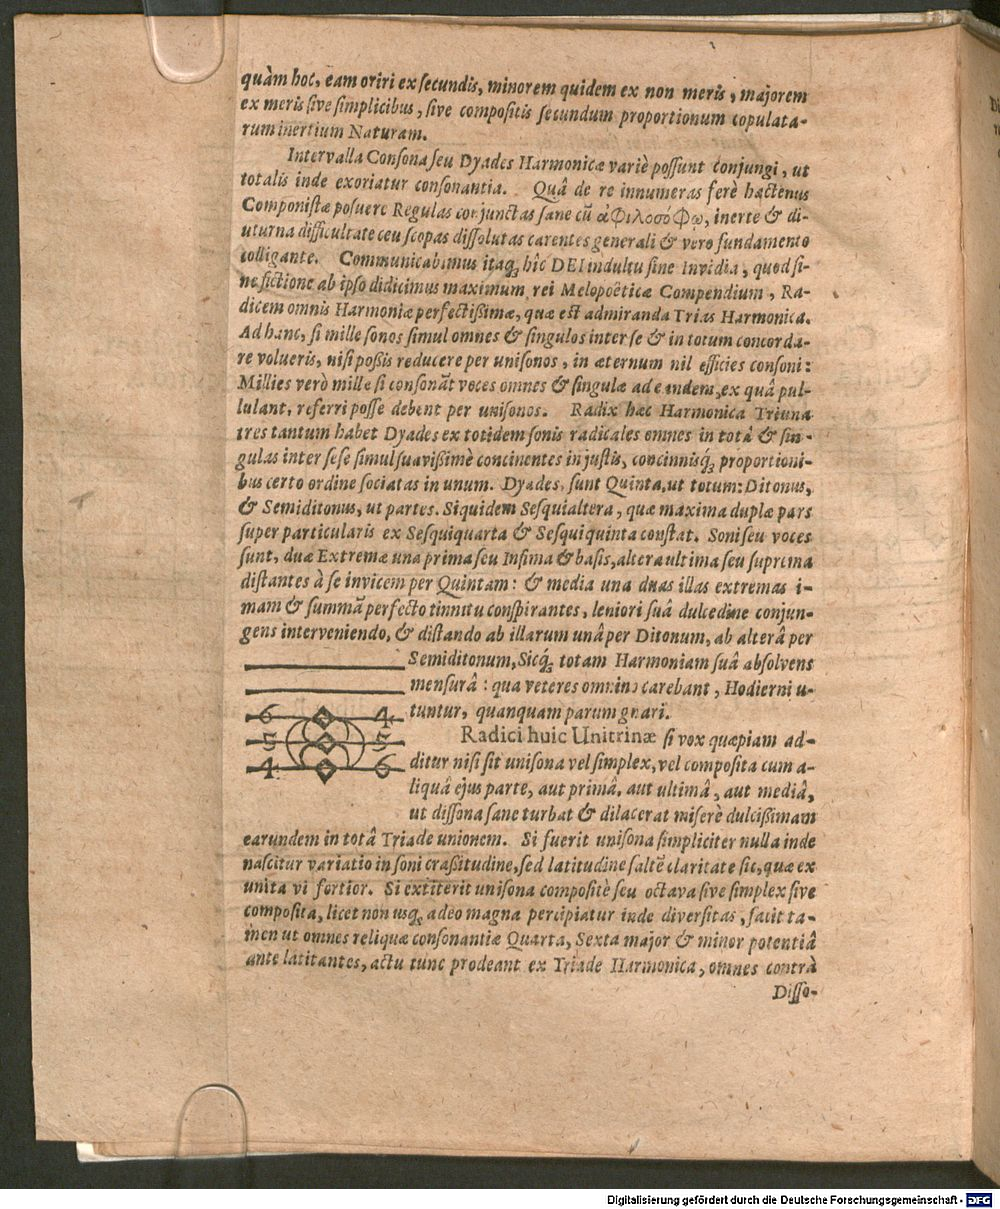 quàm hoc, eam oriri ex secundis, minorem quidem ex non meris, majorem
ex meris sive simplicibus, sive compositis secundum proportionum copulata-
rum inertium Naturam.
Intervalla Consona seu Dyades Harmonicæ variè possunt conjungi, ut
totalis inde exoriatur consonantia. Quâ de re innumeras ferè hactenus
Componistæ posuere Regulas conjunctas sane cũ ἀφιλοσόφῳ, inerte & di-
uturna difficultate ceu scopas dissolutas carentes generali & vero fundamento
colligante. Communicabimus itaq; hîc DEI indultu sine Invidia, quod si-
ne fictione ab ipso didicimus maximum rei Melopoëticæ Compendium, Ra-
dicem omnis Harmoniæ perfectißimæ, quæ est admiranda Trias Harmonica.
Ad hanc, si mille sonos simul omnes & singulos inter se & in totum concorda-
re volueris, nisi poßis reducere per unisonos, in æternum nil efficies consoni:
Millies verò mille si consonãt voces omnes & singulæ ad eandem, ex quâ pul-
lulant, referri posse debent per unisonos. Radix hæc Harmonica Triuna
tres tantum habet Dyades ex totidem sonis radicales omnes in totâ & sin-
gulas inter sese simul suavißimè concinentes in justis, concinnisq́; proportioni-
bus certo ordine sociatas in unum. Dyades, sunt Quinta, ut totum: Ditonus,
& Semiditonus, ut partes. Siquidem Sesquialtera, quæ maxima duplæ pars
super particularis ex Sesquiquarta & Sesquiquinta constat. Soni seu voces
sunt, duæ Extremæ una prima seu Infima & basis, altera ultima seu suprema
distantes à se invicem per Quintam: & media una duas illas extremas i-
mam & summã perfecto tinnitu conspirantes, leniori suâ dulcedine conjun-
gens interveniendo, & distando ab illarum unâ per Ditonum, ab alterâ per
Semiditonum, Sicq́; totam Harmoniam suâ absolvens
mensurâ: qua veteres omnino carebant, Hodierni u-
tuntur, quanquam parum gnari.
6 4
5 5
4 6
Radici huic Unitrinæ si vox quæpiam ad-
ditur nisi sit unisona vel simplex, vel composita cum a-
liquâ ejus parte, aut primâ, aut ultimâ, aut mediâ,
ut dissona sane turbat & dilacerat miserè dulcißimam
earundem in totâ Triade unionem. Si fuerit unisona simpliciter nulla inde
nascitur variatio in soni craßitudine, sed latitudine saltẽ claritate sic, quæ ex
unita vi fortior. Si extiterit unisona compositè seu octava sive simplex sive
composita, licet non usq; adeo magna percipiatur inde diversitas, facit ta-
men ut omnes reliquæ consonantiæ Quarta, Sexta major & minor potentiâ
ante latitantes, actu tunc prodeant ex Triade Harmonica, omnes contrà
Disso-
Digitalisierung gefördert durch die Deutsche Forschungsgemeinschaft - DFG